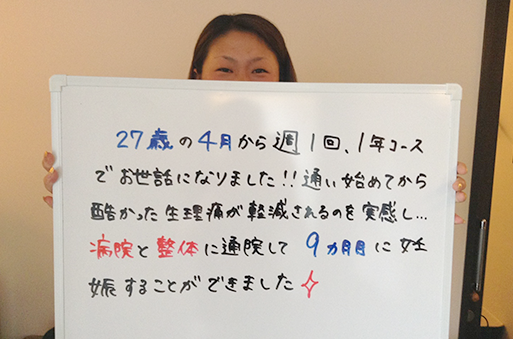 27歳の4月から週1回、1年コース
でお世話になりました!!通い始めてから
酷かった生理痛が軽減されるのを実感し…
病院と整体に通院して9ヵ月目に妊
娠することができました